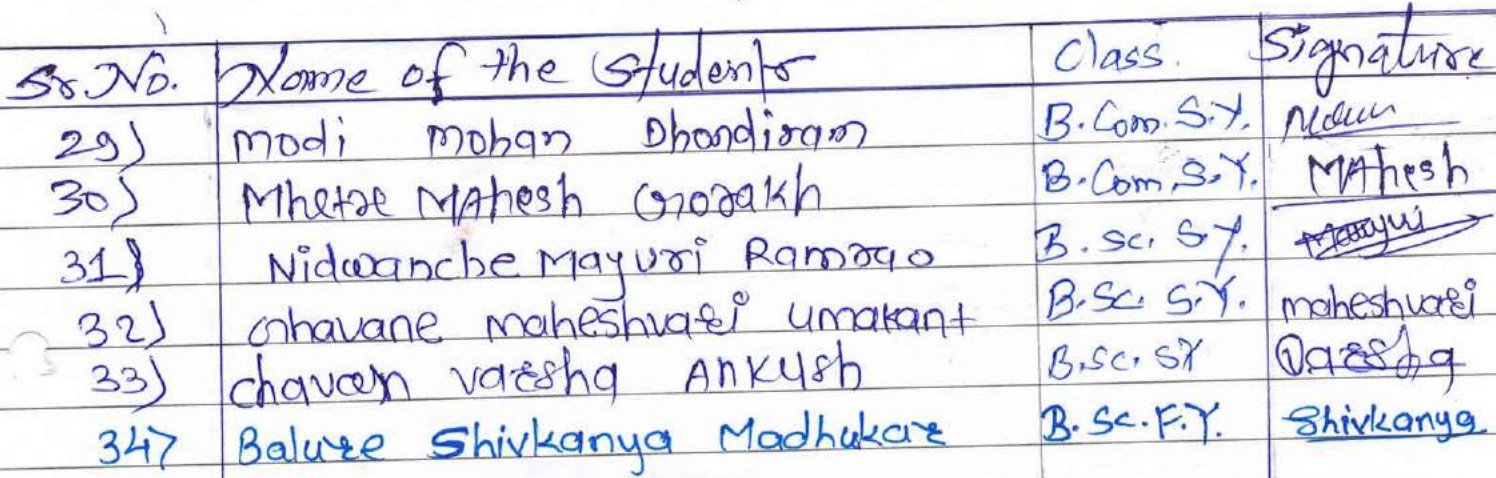 Sr. No. Name of the Students Class. Signature
29) Modi Mohan Dhondiram B.Com. S.Y.
30) Mhetre MAhesh Gorakh B.Com. S.Y. MAhesh
31) Nidwanche Mayuri Ramrao B. Sc. S.Y. Mayuri
32) Ghavane maheshvari Umakant B.Sc. S.Y. maheshvari
33) chavan varsha Ankush B.Sc. SY Varsha
34) Balure Shivkanya Madhukar B. Sc. F.Y. Shivkanya